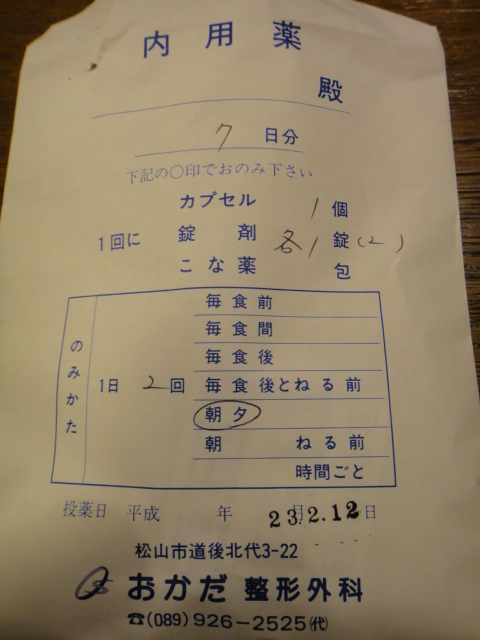 内用薬
殿
7 日分
下記の〇印でおのみ下さい
カプセル 1 個
1回に 錠剤 各1 錠(2)
こな薬 包
のみかた
1日 2 回
毎食前
毎食間
毎食後
毎食後とねる前
朝夕
朝 ねる前
時間ごと
投薬日 平成 年 月 日 23.2.12
松山市道後北代3-22
おかだ整形外科
☎(089)926-2525(代)